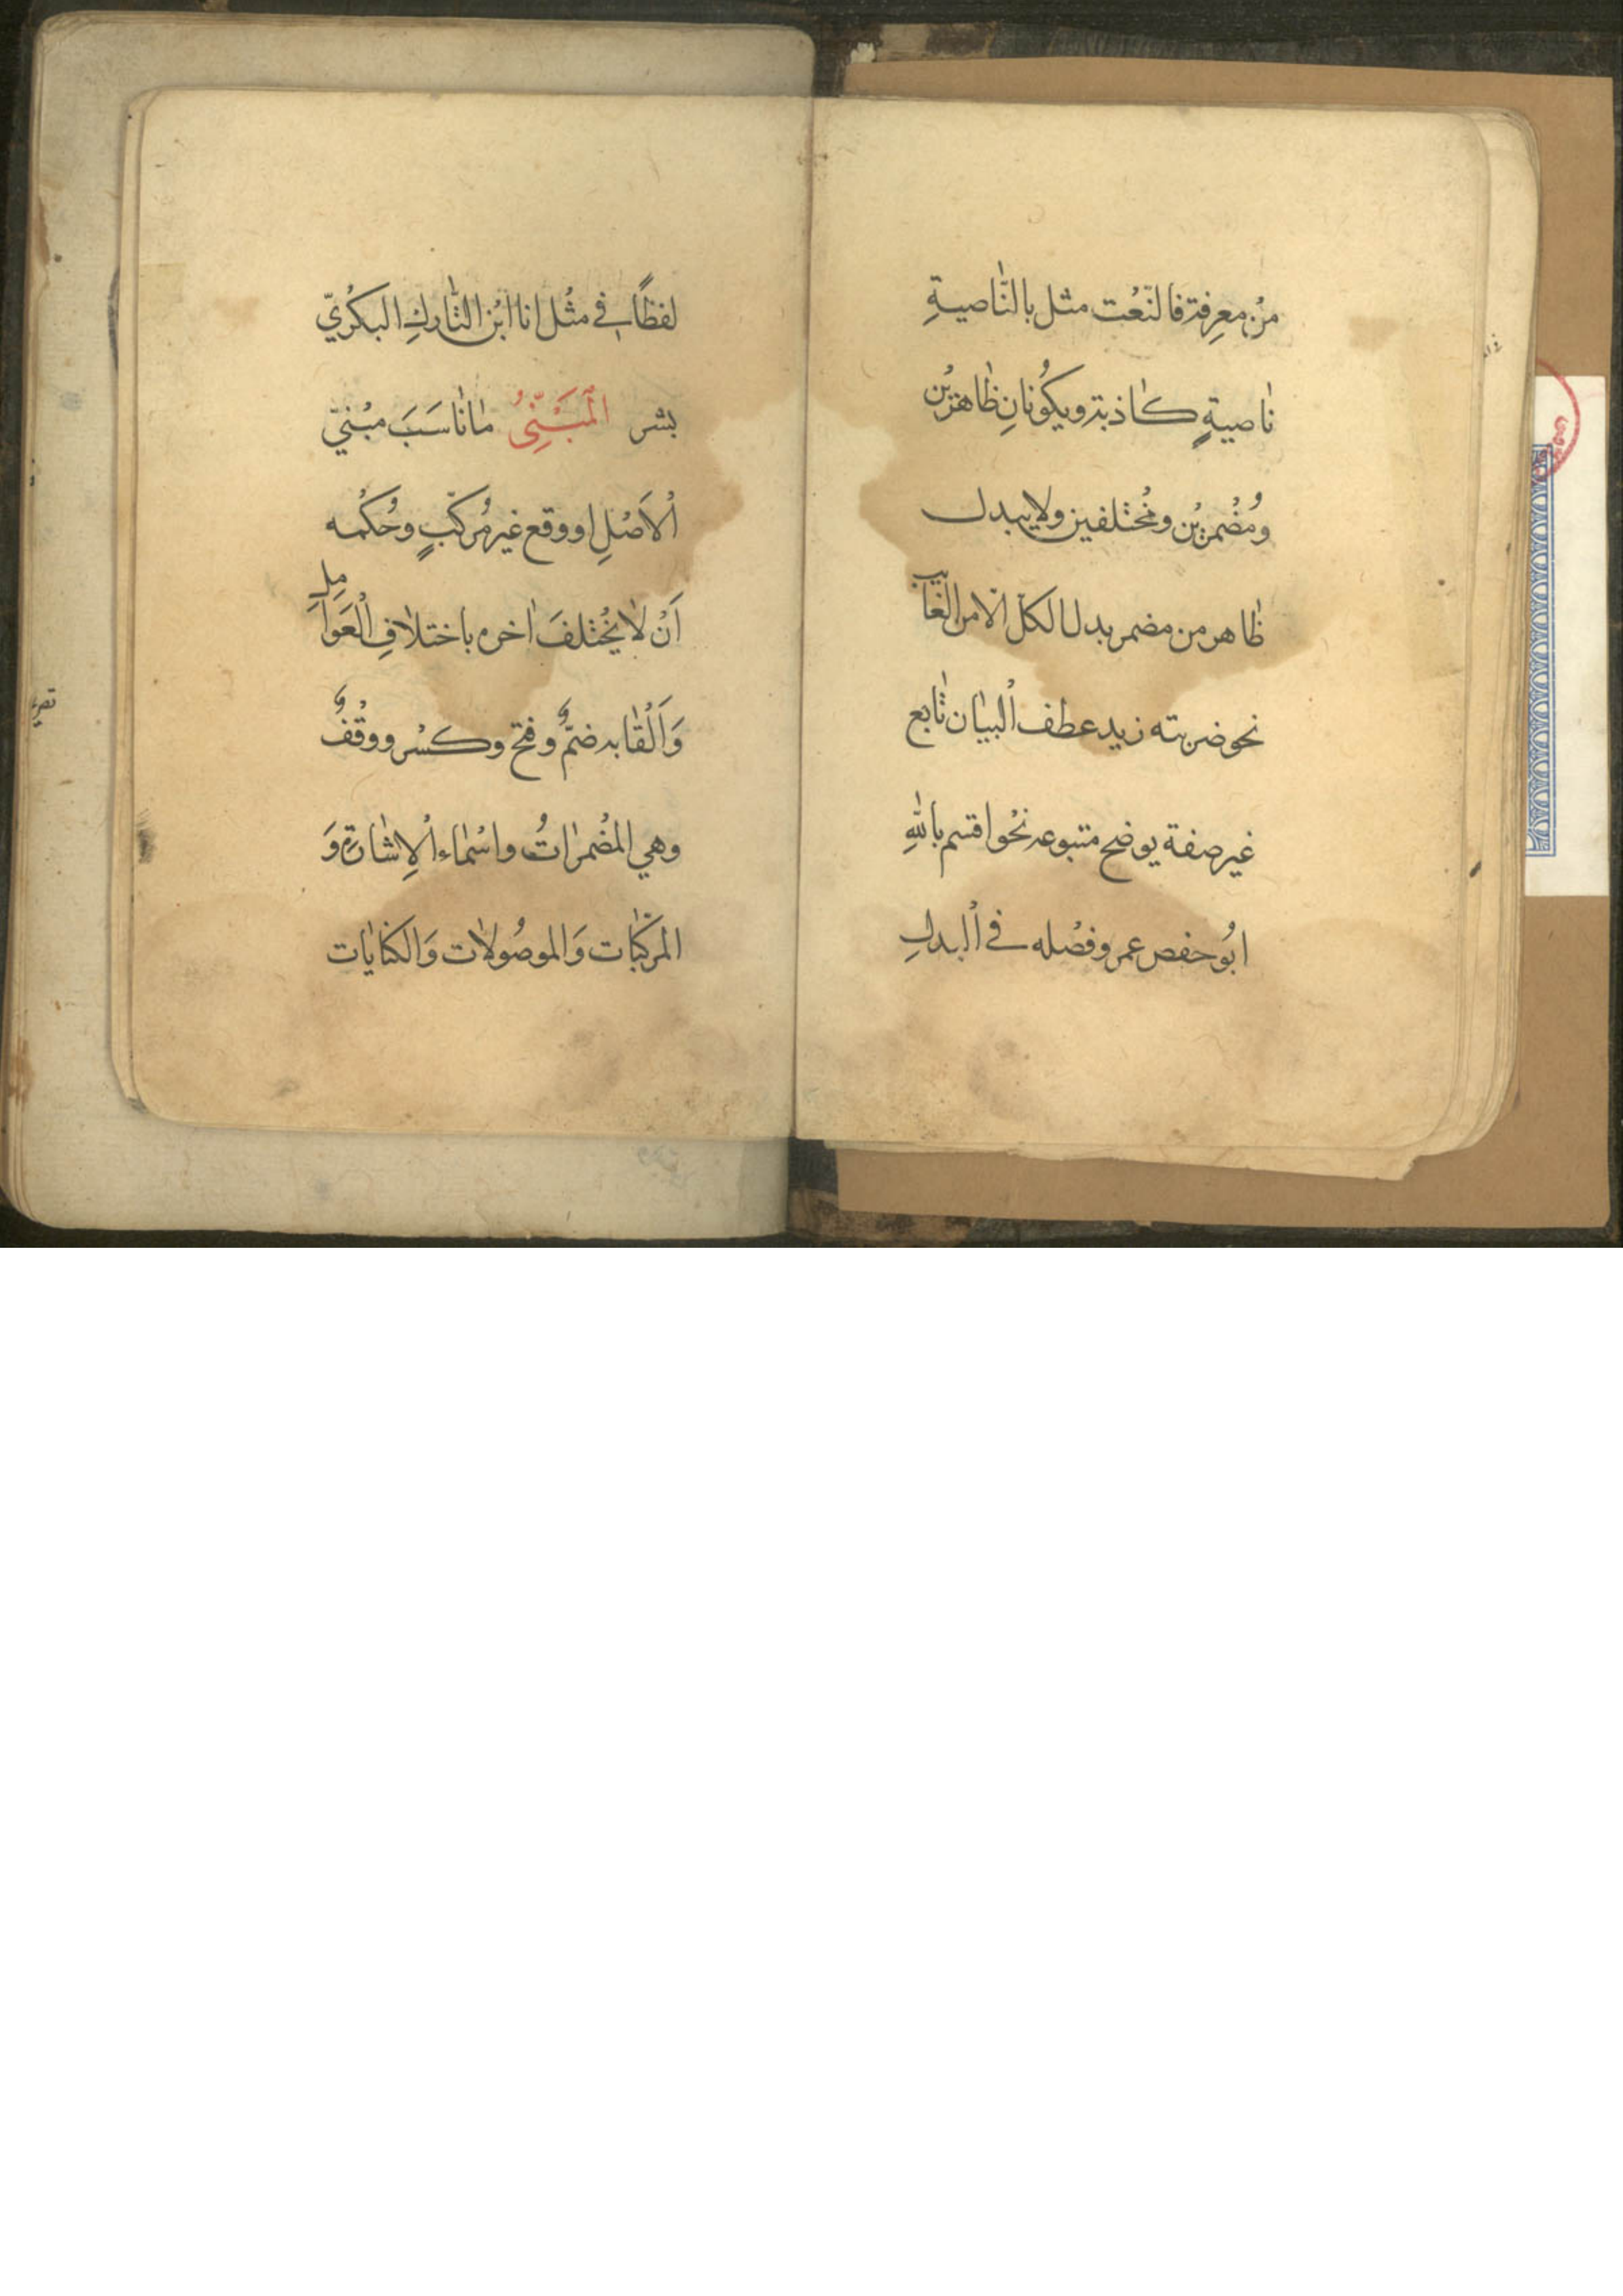 مِنْ معرِفة فالنّعْت مثل بالنَّاصيةِ
ناصيةٍ كاذبة ويكُونانِ ظاهرَيْن
ومُضْمرَيْن ومُخْتلفين ولا يبدل
ظاهر من مضمر بدل الكلّ الّا من الغايب
نحو ضربته زيد عطف الْبيان تابع
غير صفة يوضح متبوعه نحْو اقسم باللهِ
ابُو حفص عمر وفصْله في الْبدلِ
لفظًا في مثْل انا ابْن التّاركِ البكْريّ
بشر الْمَبْنِيُّ ما ناسَبَ مبْنيّ
الْاَصْلِ او وقع غير مُركّبٍ وحُكمْه
اَنْ لا يخْتلفَ اخره باختلافِ الْعَوامِلِ
وَاَلْقابه ضمٌّ وفتح وكسْر ووقْفٌ
وهي المُضْمراتُ واسْماء الْاِشارةِ وَ
المركّبات وَالموصُولات وَالكنايات